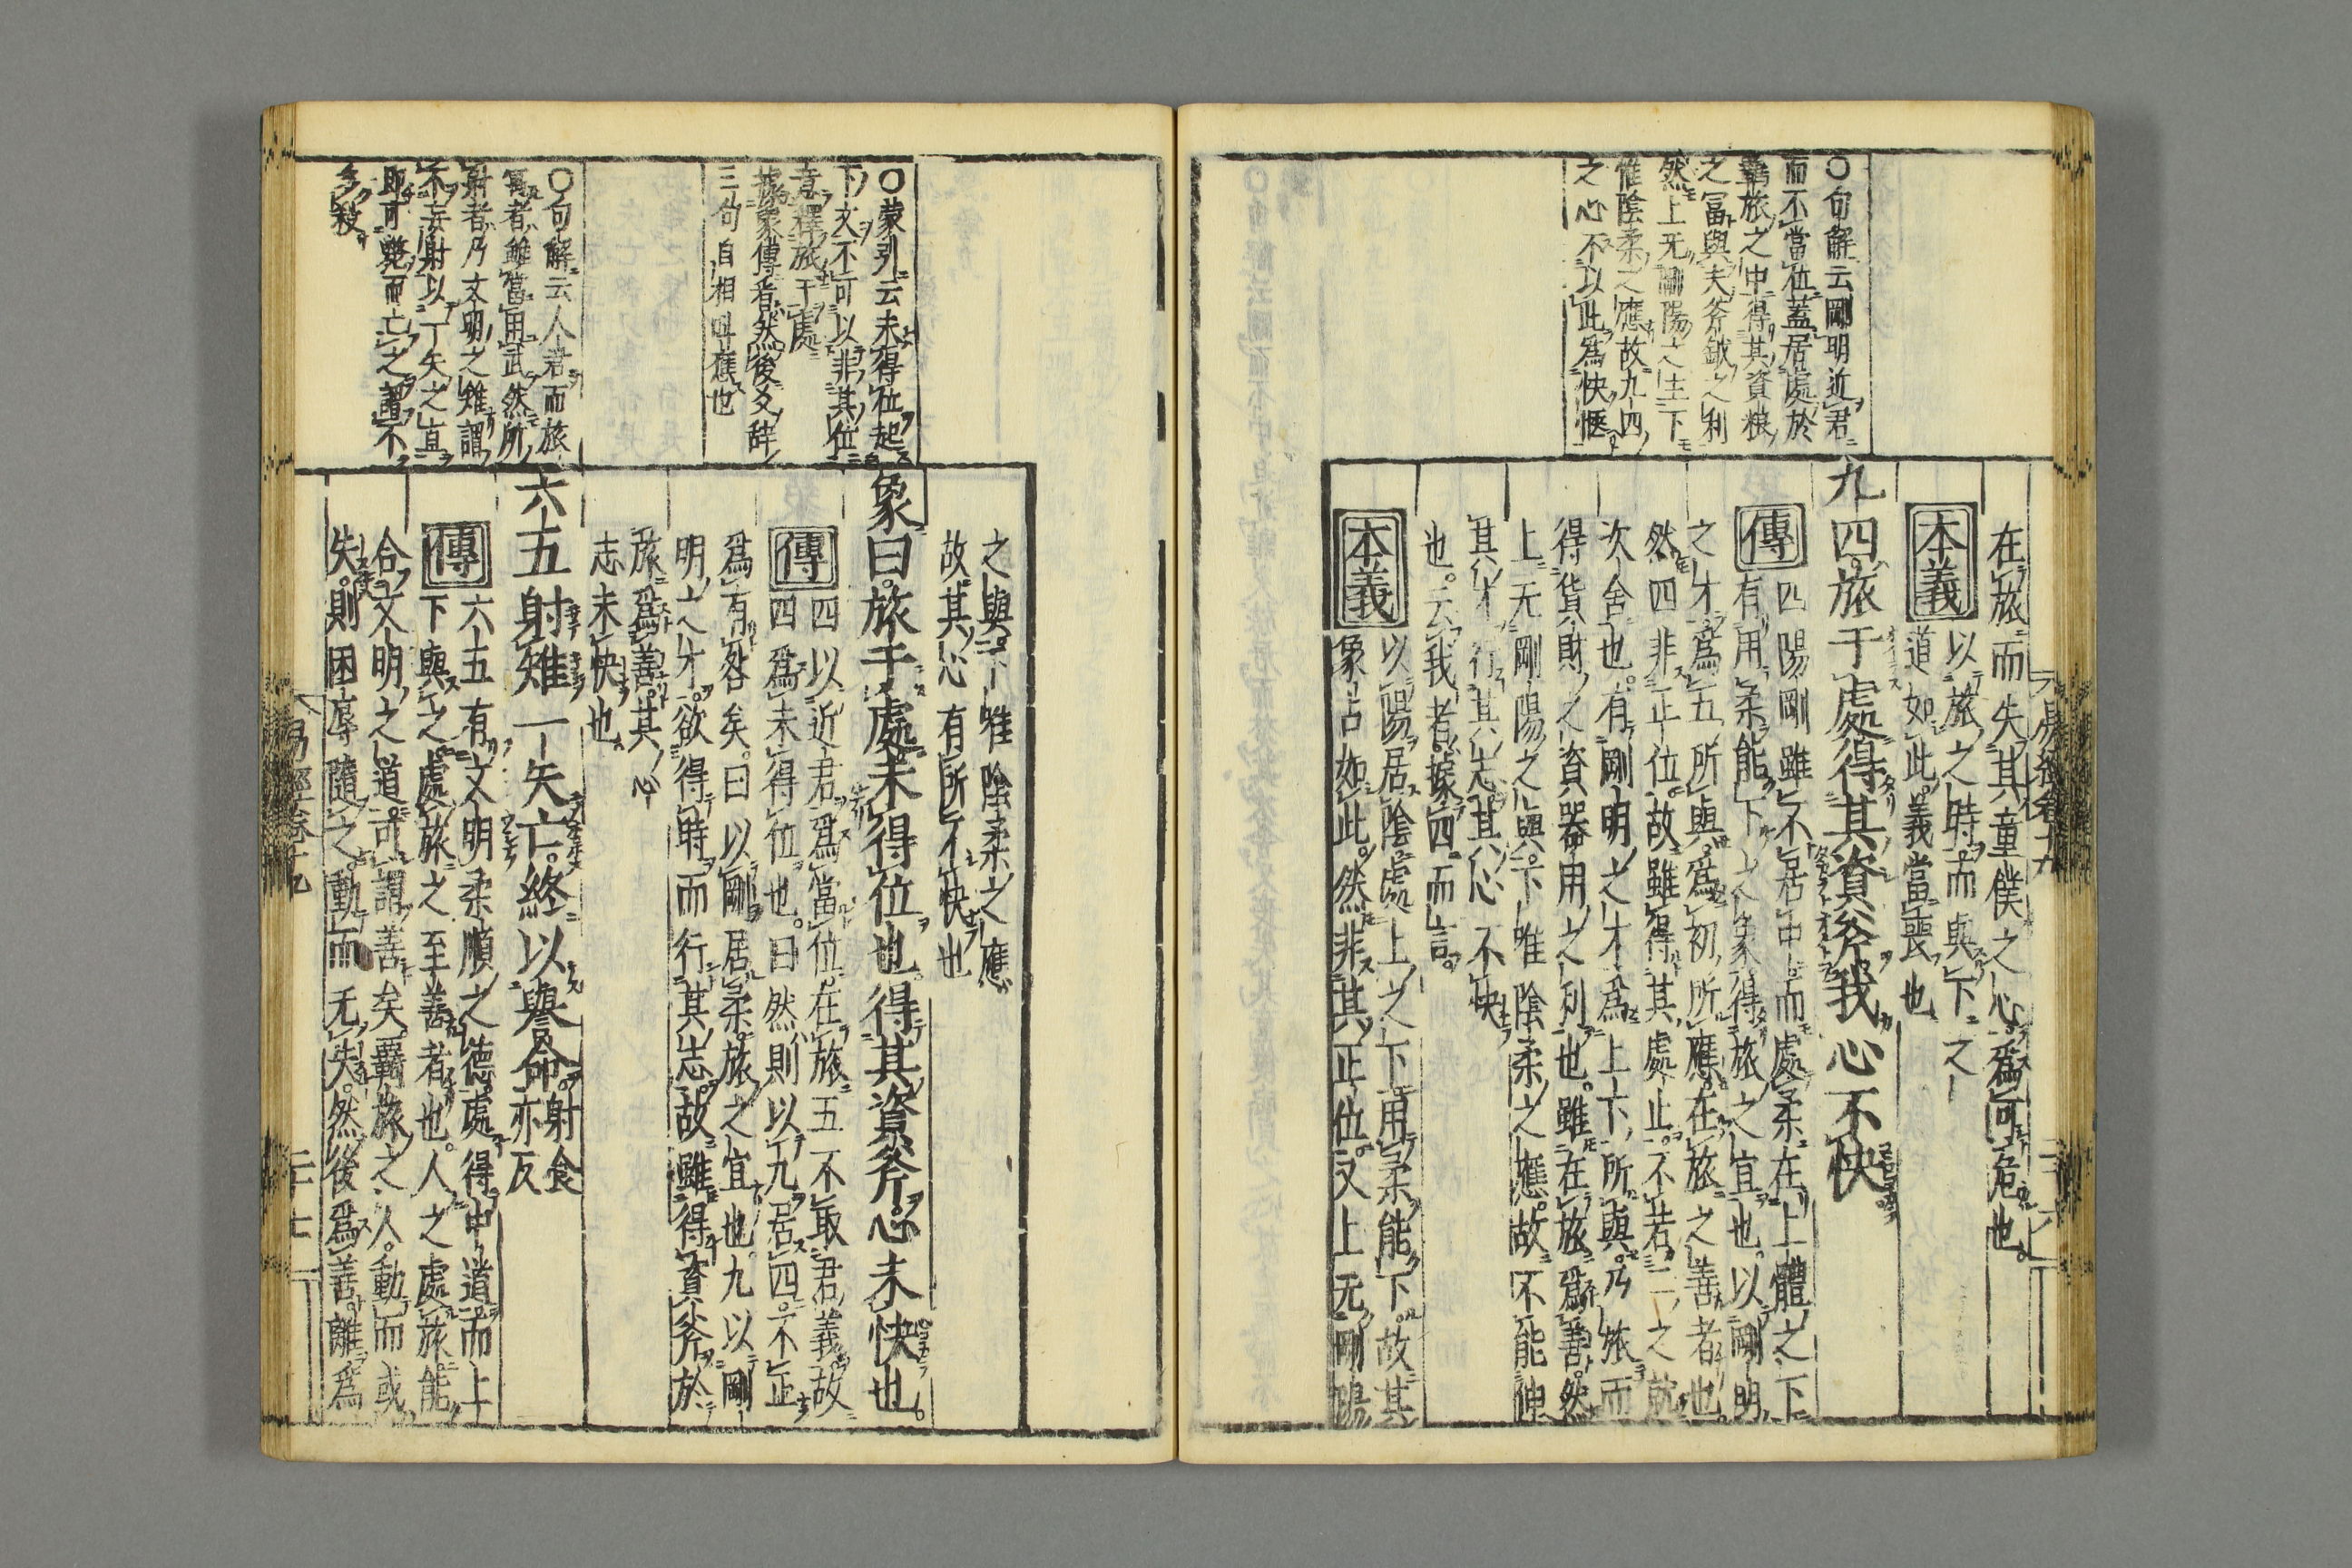 在旅而失其童僕之心爲可危也
本義
以旅之時而與下之
道如此義當喪也
九四旅于處得其資斧我心不快
傳
四陽剛雖不居中而處柔在上體之下
有用柔能下之象得旅之宜也以剛明
之才爲五所與爲初所應在旅之善者也
然四非正位故雖得其處止不若二之就
次舍也有剛明之才爲上下所與乃旅而
得貨財之資器用之利也雖在旅爲善然
上无剛陽之與下唯陰柔之應故不能伸
其才行其志其心不快
也云我者據四而言
本義
以陽居陰處上之下用柔能下故其
象占如此然非其正位又上无剛陽
○句解云剛明近君
而不當位蓋居處於
羇旅之中得其資糧
之富與夫斧鉞之利
然上无剛陽之主下
惟陰柔之應故九四
之心不以此爲快愜
之與下唯陰柔之應
故其心有所不快也
象曰旅于處未得位也得其資斧心未快也
傳
四以近君爲當位在旅五不取君義故
四爲未得位也曰然則以九居四不正
爲有咎矣曰以剛居柔旅之宜也九以剛
明之才欲得時而行其志故雖得資斧於
旅爲善其心
志未快也
六五射雉一矢亡終以譽命射食
亦反
傳
六五有文明柔順之德處得中道而上
下與之處旅之至善者也人之處旅能
合文明之道可謂善矣羇旅之人動而或
失則困辱隨之動而无失然後爲善離爲
○蒙引云未得位起
下文不可以非其位
意釋旅于處
據象傳看然後爻辭
三句自相呼應也
○句解云人君而旅
寓者雖當用武然所
射者乃文明之雉謂
不妄射以一矢之直
即可斃而亡之盡不
多殺
易經卷十九
二十七